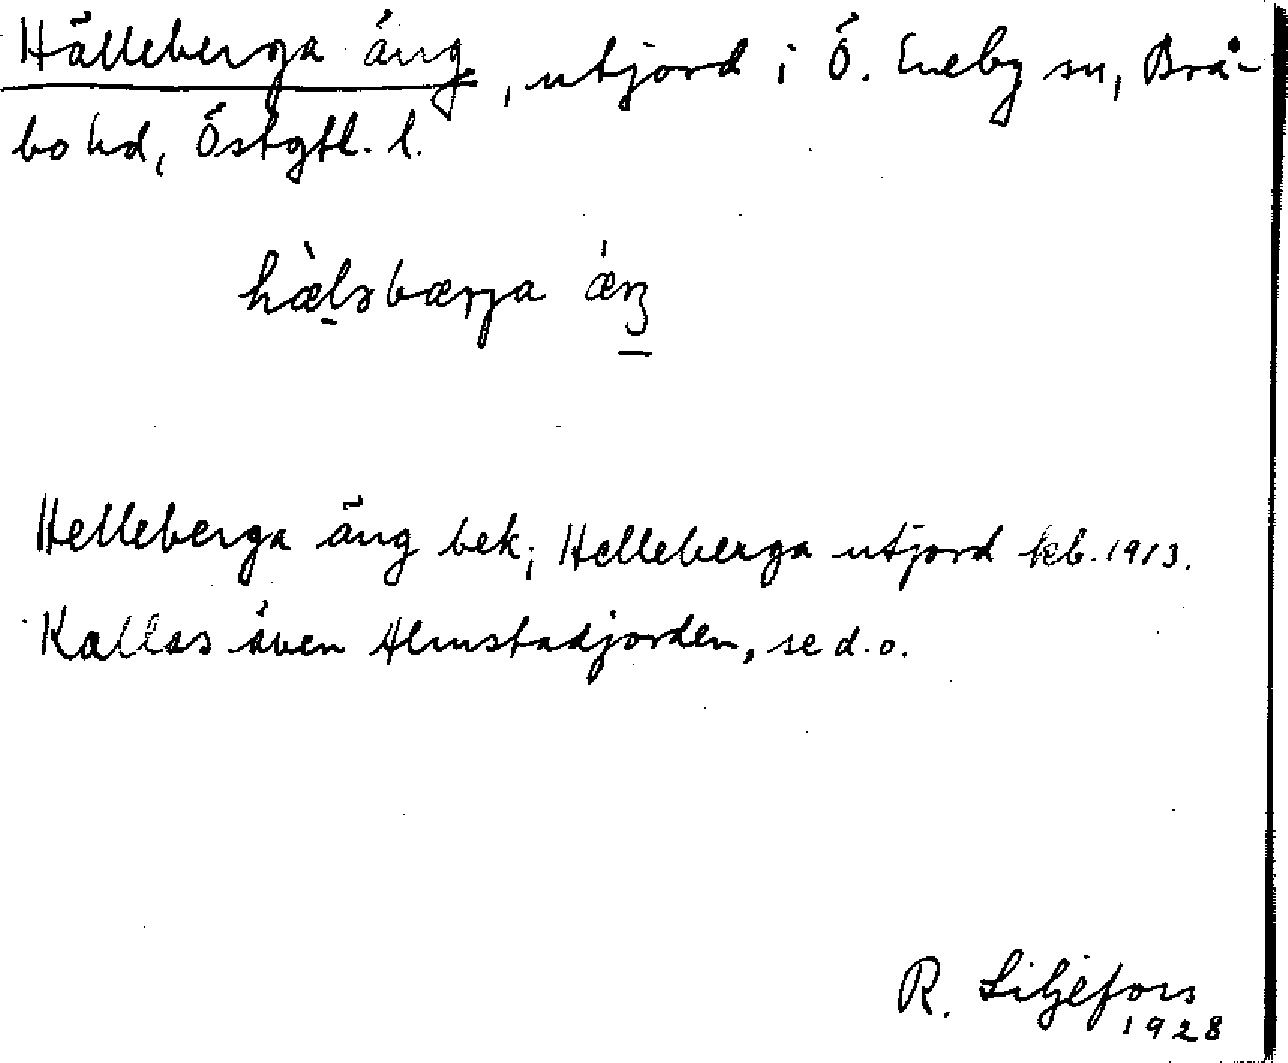 Hälleberga äng, utjord i Ö. Eneby sn, Brå-
bo hd, Östgtl. l.
hæ̀lǝbærja ǽŋ
Helleberga äng bek; Helleberga utjord kb. 1913.
Kallas även Almstadjorden, se d.o.
R. Liljefors
1928